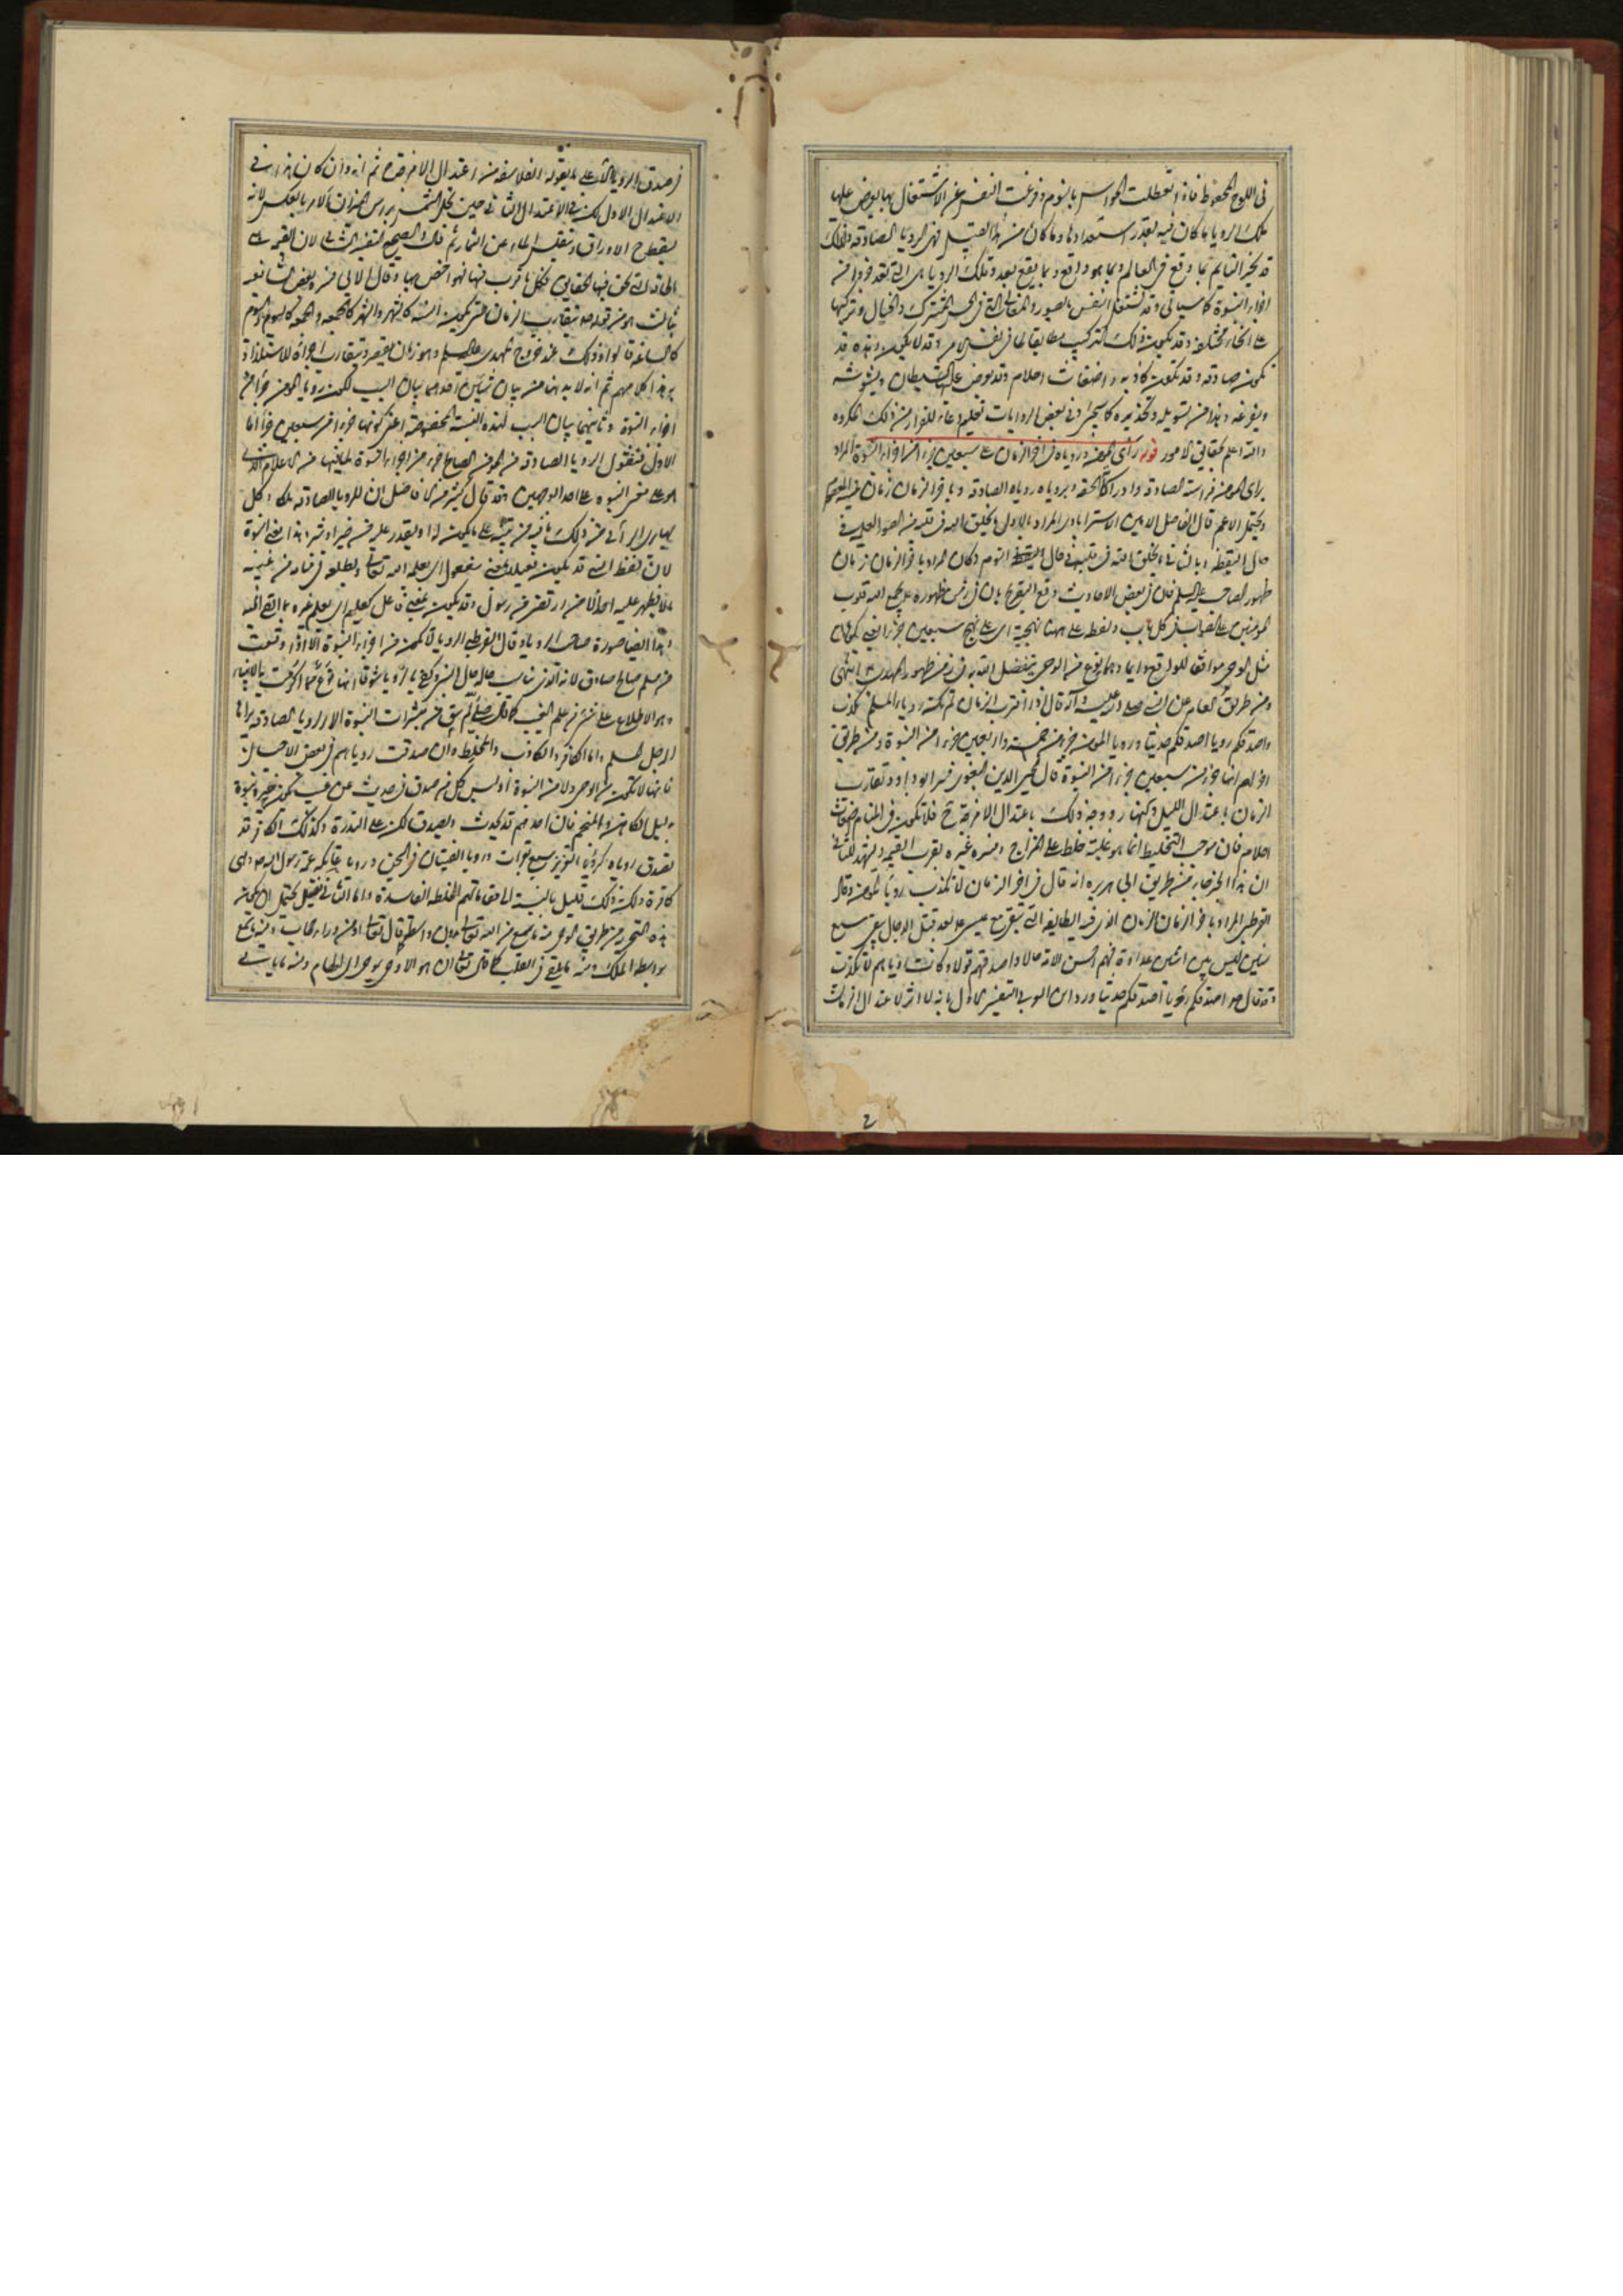 فى اللوح المحفوظ فاذا تعطلت الحواس بالنوم وفرغت النفس عن الاشتغال بها يعرض عليها
تلك الرويا ما كان فيه بقدر استعدادها وما كان من هذا القبيل فهى الرويا الصادقة ولذلك
قد يخبر النايم بما وقع فى العالم وبما هو واقع وبما يقع بعد وتلك الرويا هى التى تعد جزءا من
اجزاء النبوة كما سياتى وقد تشتغل النفس بالصور والمعانى التى فى الحس المشترك والخيال وتركبها
على انحاء مختلفة وقد يكون ذلك التركيب مطابقا لما فى نفس الامر وقد لا يكون وهذه قد
تكون صادقة وقد تكون كاذبة واضغاث احلام وقد يعرض عليها الشيطان ويشوشه
ويفزعه وهذا من تسويله وتحذيره كما سيجئ وفى بعض الروايات تعليم دعاء للفرار من ذلك المكروه
والله اعلم بحقايق الامور قوله راى المومن ورؤياه فى اخر الزمان على سبعين جزءا من اجزاء النبوة المراد
براى المومن فراسته الصادقة وادراكاته الحقة وبرؤياه روياه الصادقة وباخر الزمان زمان غيبة المعصوم
ويحتمل الاعم قال الفاضل الامين الاسترابادى المراد بالاول ما يخلق الله فى قلبه من الصور العلمية فى
حال اليقظة وبالثانى ما يخلق الله فى قلبه فى حال النوم وكان المراد باخر الزمان زمان
ظهور الصاحب عليه السلم فان فى بعض الاحاديث وقع التصريح بان فى زمن ظهوره ع يجمع الله قلوب
المومنين على الصواب فى كل باب ولفظ على هنا نهجية اى على نهج سبعين جزءا يعنى يكون
مثل الوحى موافقا للواقع دايما وهما نوع من الوحى بتفضل الله به فى زمن ظهور المهدى ع انتهى
ومن طريق العامة عن النبى صلى الله عليه وآله قال اذا اقترب الزمان لم تكد رويا المسلم تكذب
واصدقكم رويا اصدقكم حديثا ورويا المومن جزء من خمسة واربعين جزءا من النبوة ومن طريق
اخر لهم انها جزء من سبعين جزءا من النبوة قال محيى الدين البغوى فسر ابو داود تقارب
الزمان باعتدال الليل والنهار ووجه ذلك باعتدال الامزجة ح فلا تكون فى المنام اضغاث
احلام فان موجب التخليط انما هو غلبة خلط على المزاج وفسره غيره بقرب القيمة ويشهد للثانى
ان هذا الخبر جاء من طريق ابى هريره انه قال فى اخر الزمان لا تكذب رويا المومن وقال
القرطبى المراد باخر الزمان الزمان الذى فيه الطايفة التى تبقى مع عيسى ع بعد قتل الدجال يبقى سبع
سنين ليس بين اثنين عداوة فهم احسن الامة حالا واصدقهم قولا وكانت روياهم لا تكذب
وقد قال ص اصدقكم رويا اصدقكم حديثا ورد ابن العربى التفسير الاول بانه لا اثر لاعتدال الزمان
فى صدق الرويا الا على ما يقوله الفلاسفة من اعتدال الامزجة ح ثم انه وان كان هذا فى
الاعتدال الاول لكن فى الاعتدال الثانى حين تحل الشمس براس الميزان الامر بالعكس لانه
يسقط ح الاوراق ويتقلص الماء عن الثمار ثم قال والصحيح التفسير الثانى لان القيمة هى
الحاقة التى تحق فيها الحقايق فكل ما قرب منها فهو اخص بها وقال الابى فسره بعض الشافعية
بثالث وهو من قوله ص يتقارب الزمان حتى تكون السنة كالشهر والشهر كالجمعة والجمعة كاليوم واليوم
كالساعة قالوا وذلك عند خروج المهدى عليه السلم وهو زمان يقصر وتتقارب اجزاؤه للاستلذاذ
به هذا كلامهم ثم انه لا بد هنا من بيان شيئين احدهما بيان السبب لكون رويا المومن جزءا من
اجزاء النبوة وثانيهما بيان السبب لهذه النسبة المخصوصة اعنى كونها جزءا من سبعين جزءا اما
الاول فنقول الرويا الصادقة من المومن الصالح جزء من اجزاء النبوة لما فيها من الاعلام الذى
هو على معنى النبوة على احد الوجهين وقد قال كثير من الافاضل ان للرويا الصادقة ملكا وكل
بها يرى الرأى من ذلك ما فيه من تنبيه على ما يكون له او يقدر عليه من خير او شر وهذا معنى النبوة
لان لفظ النبى قد يكون فعيلا بمعنى مفعول اى يعلمه الله تعالى ويطلعه فى منامه من غيبه
ما لا يظهر عليه احدا الا من ارتضى من رسول وقد يكون بمعنى فاعل كعليم اى يعلم غيره بما القى اليه
وهذا ايضا صورة صاحب الرويا وقال القرطبى الرويا لا تكون من اجزاء النبوة الا اذا وقعت
من مسلم صالح صادق لانه الذى يناسب حاله حال النبى وكفى بالرويا شرفا انها نوع مما اكرمت به الانبياء
وهو الاطلاع على شئ من علم الغيب كما قال صلى الله عليه لم يبق من مبشرات النبوة الا الرويا الصادقة يراها
الرجل المسلم واما الكافر والكاذب والمخلط وان صدقت روياهم فى بعض الاحيان
فانها لا تكون من الوحى ولا من النبوة اذ ليس كل من صدق فى حديث عن غيب يكون خبره نبوة
بدليل الكاهن والمنجم فان احدهم قد يحدث ويصدق لكن على الندرة وكذلك الكافر قد
تصدق روياه كرويا العزيز سبع بقرات ورويا الفتيان فى السجن ورويا عاتكة عمة رسول الله ص وهى
كافرة ولكن ذلك قليل بالنسبة الى مناماتهم المخلطة الفاسدة واما الثانى فقيل يحتمل ان يكون
هذه التجزية من طرق الوحى منه ما سمع من الله تعالى بدون واسطة كما قال تعالى او من وراء حجاب ومنه ما سمع
بواسطة الملك ومنه ما يلقى فى القلب كما قال تعالى ان هو الا وحى يوحى اى الهام ومنه ما ياتى